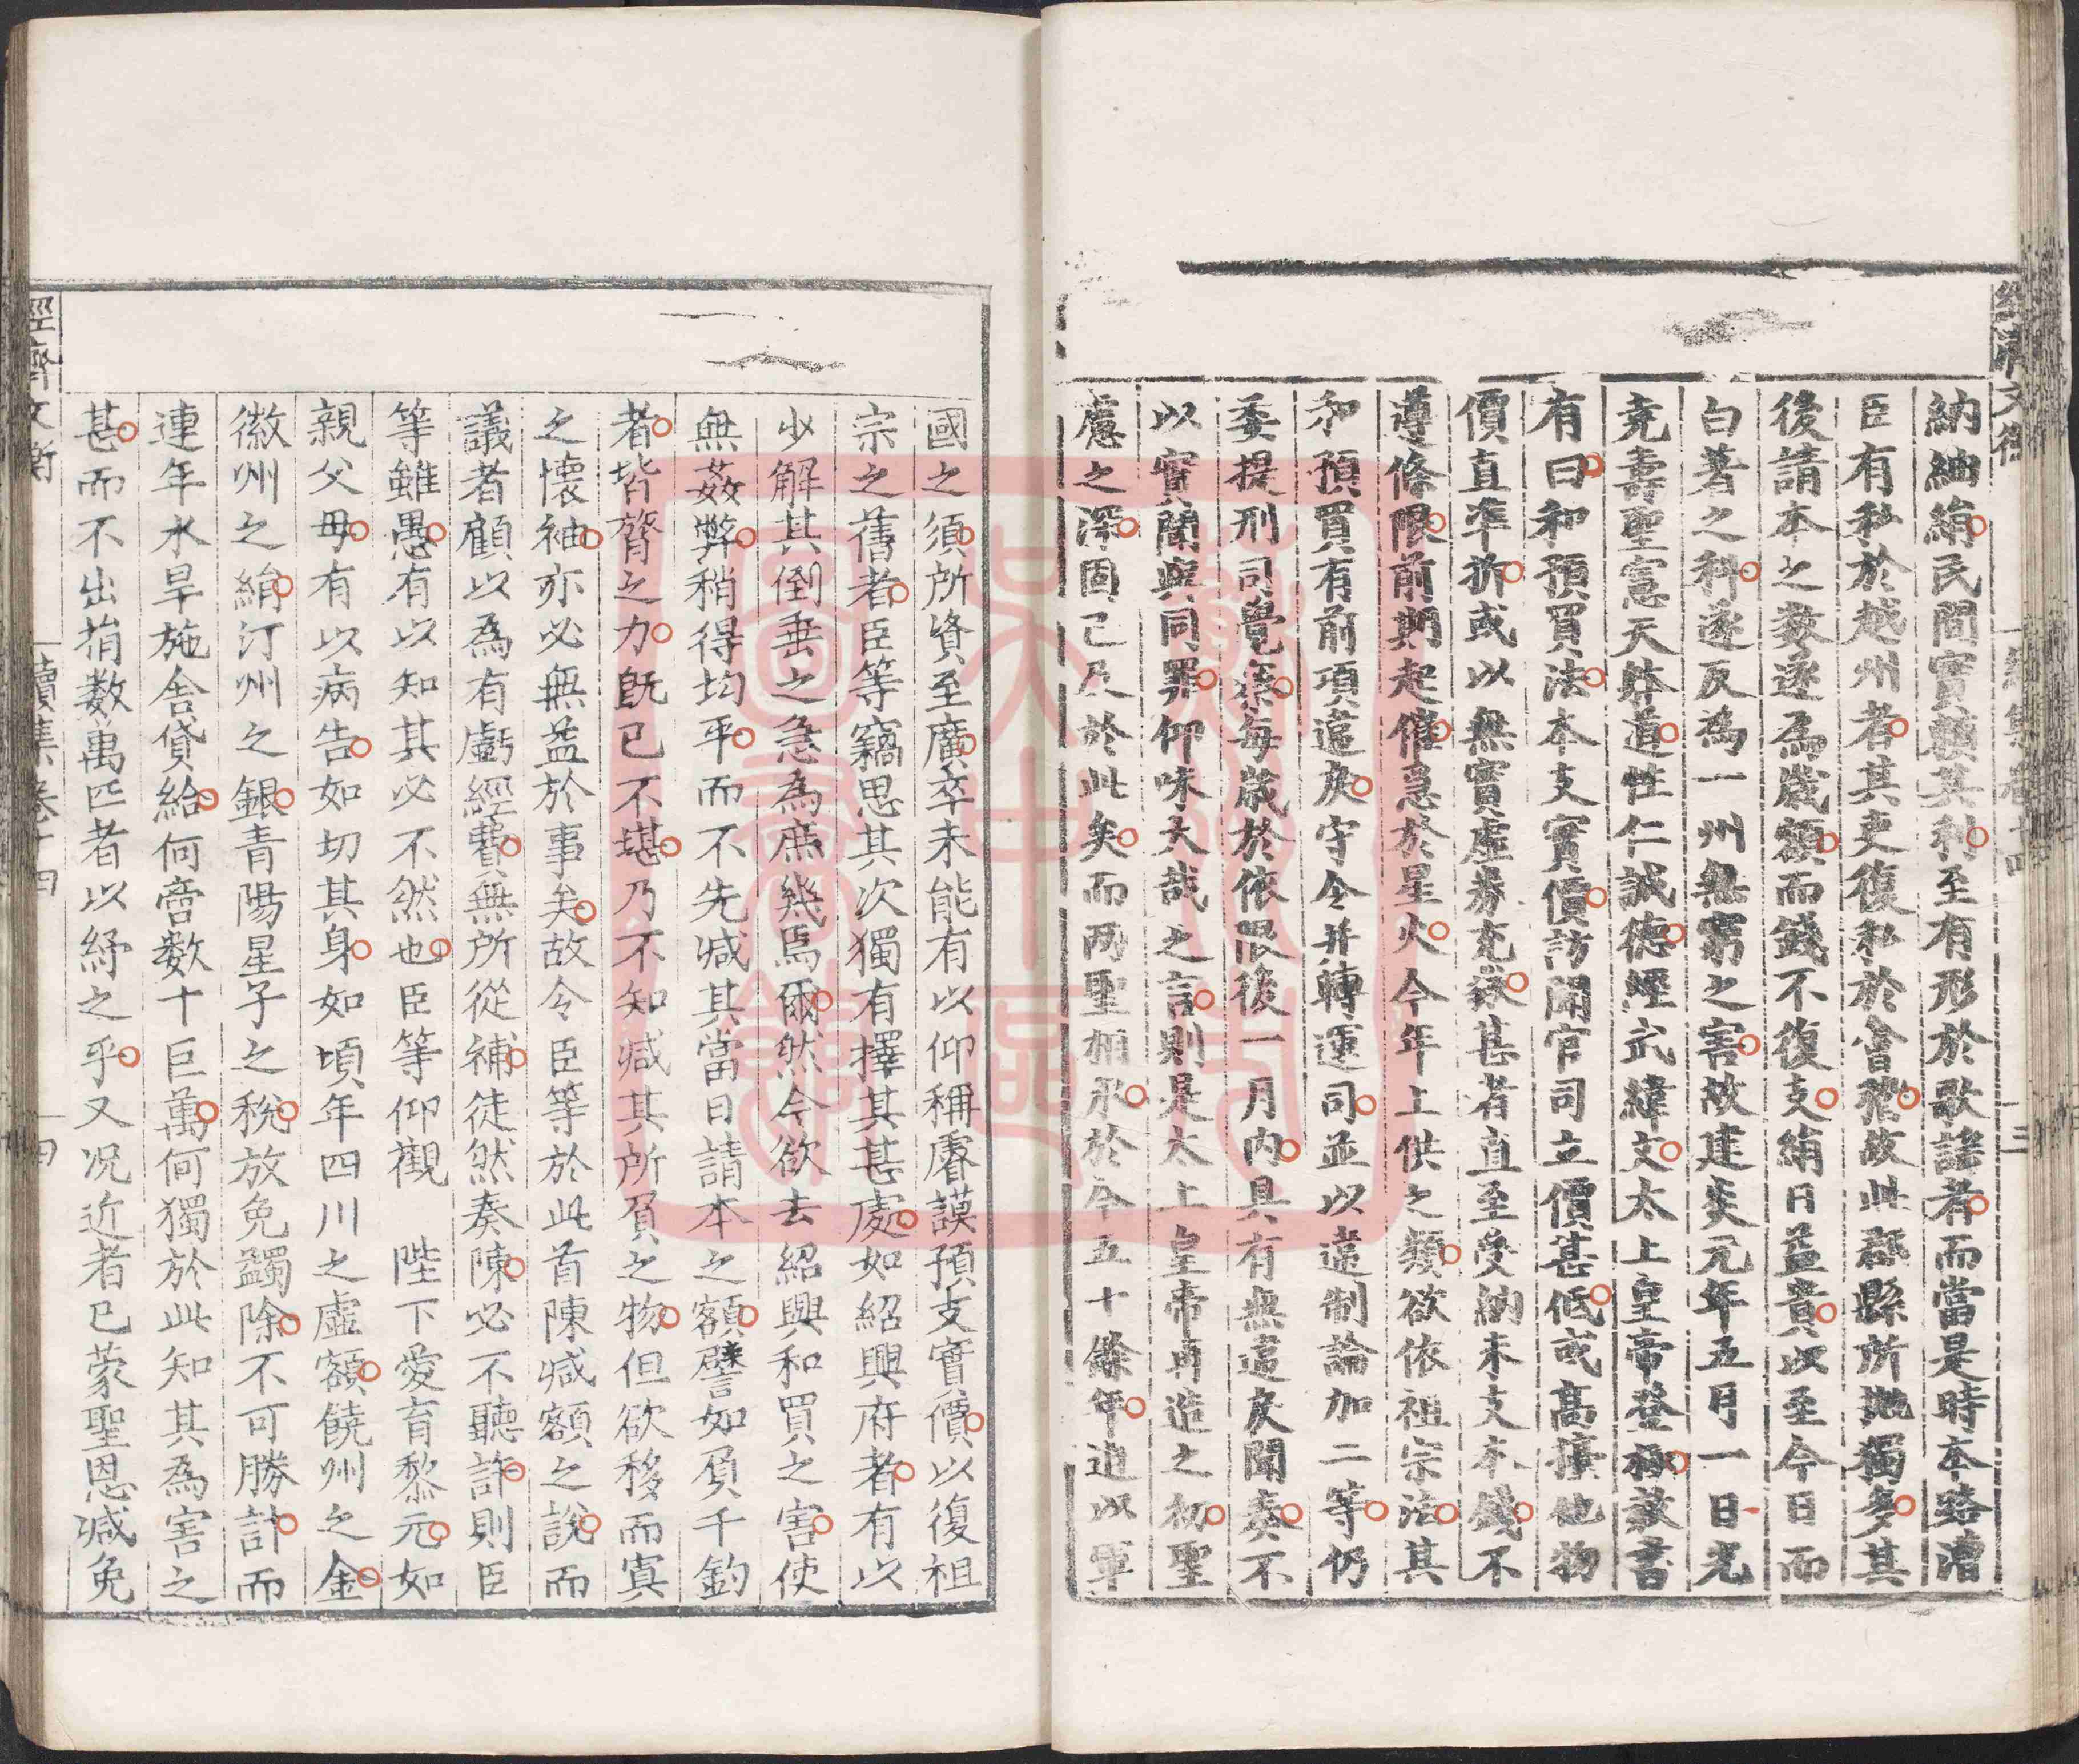 納紬絹民間實賴其利至有形於歌謠者而當是時本路漕
臣有私於越州者其吏復私於會稽故此郡縣所拋獨多其
後請本之數遂爲歲額而錢不復支絹日益貴以至今日而
白著之科遂反爲一州無窮之害故建炎元年五月一日光
堯壽聖憲天體道性仁誠德經武緯文太上皇帝登極赦書
有曰和預買法本支實價訪聞官司立價甚低或高擡他物
價直準折或以無實虛券充數甚者直至受納未支本錢不
遵條限前期起催急於星火今年上供之類欲依祖宗法其
和預買有前項違戾守令并轉運司並以違制論加二等仍
委提刑司覺察每歲於依限後一月內具有無違戾聞奏不
以實聞與同罪仰味大哉之言則是太上皇帝再造之初聖
慮之澤固已及於此矣而兩聖相承於今五十餘年迫以軍
國之須所資至廣卒未能有以仰稱睿謨預支實價以復祖
宗之舊者臣等竊思其次獨有擇其甚處如紹興府者有以
少解其倒垂之急為庶幾焉爾然今欲去紹興和買之害使
無姦弊稍得均平而不先減其當日請本之額譬如負千鈞
者皆膂之力旣已不堪乃不知減其所負之物但欲移而寘
之懷袖亦必無益於事矣故今臣等於此首陳減額之說而
議者顧以爲有虧經費無所從補徒然奏陳必不聽許則臣
等雖愚有以知其必不然也臣等仰觀　陛下愛育黎元如
親父母有以病告如切其身如頃年四川之虛額饒州之金
徽州之絹汀州之銀青陽星子之稅放免蠲除不可勝計而
連年水旱施舍貸給何啻數十巨萬何獨於此知其為害之
甚而不出捐数萬匹者以紓之乎又況近者已蒙聖恩減免
經濟文衡
續集卷十四
四